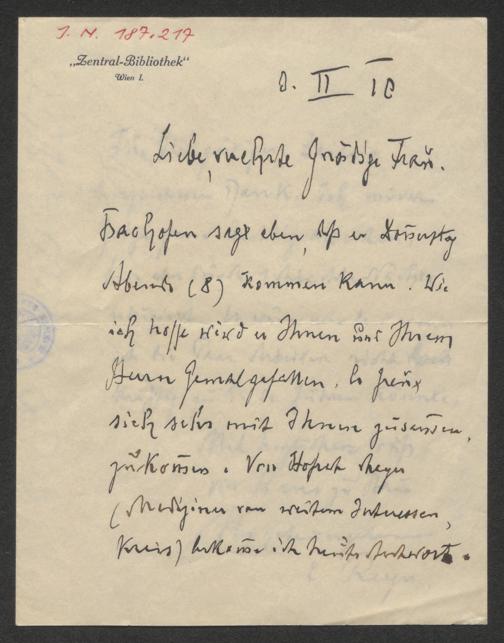 J. N. 187.217
„Zentral-Bibliothek“
Wien I.
8. II 18
Liebe, verehrte Gnädige Frau.
sagt eben, daß er Donnerstag
Abend (8) kommen kann. Wie
ich hoffe wird er Ihnen und Ihrem
Herrn Gemahl gefallen. Er freut
sich sehr mit Ihnen zusammen
zukommen. Von Hofrat Meyer
(Mediziner von weitem Interessen,
kreis) bekomme ich heute Antwort.